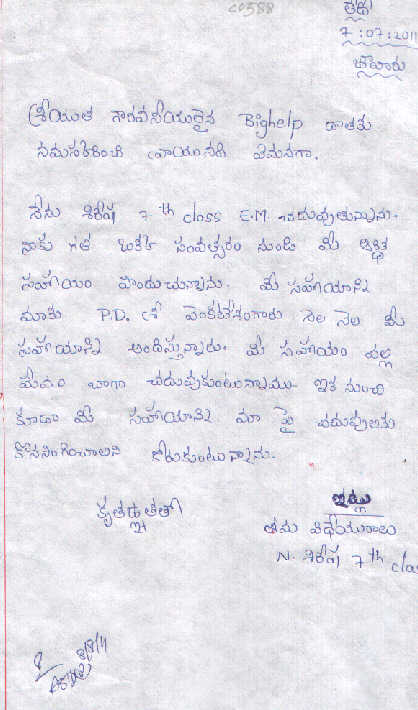 C0588
తేది
7:07:2011
శ్రీయుత గౌరవనీయులైన Bighelp దాతకు
నమస్కరించి వ్రాయునది ఏమనగా.
నేను శిరీష 7th class E.M. చదువుతున్నాను.
నాకు గత ఒకటి సంవత్సరం నుండి మీ ఆర్థిక
సహాయం పొందుచున్నాను. మీ సహాయాన్ని
మాకు P.D. శ్రీ వెంకటేశంగారు నెల నెల మీ
సహాయాన్ని అందిస్తున్నారు. మీ సహాయం వల్ల
మేము బాగా చదువుకుంటున్నాము. ఇక నుంచి
కూడా మీ సహాయాన్ని మా పై చదువులకు
కొనసాగించాలని కోరుకుంటున్నాను.
కృతజ్ఞతతో
ఇట్లు
తమ విధేయురాలు
N. శిరీష 7th class
8/8/11